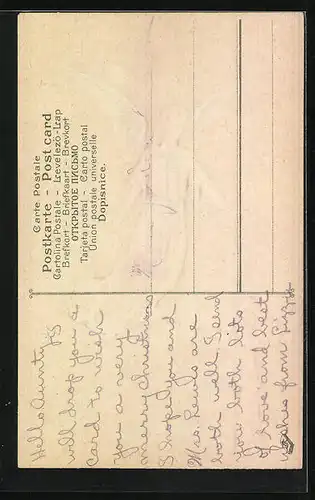 Carte Postale
Postkarte – Post card
Cartolina Postale – Levelező-Lap
Brefkort – Briefkaart – Brevkort
ОТКРЫТОЕ ПИСЬМО
Tarjeta postal – Carto postal
Union postale universelle
Dopisnice.
Hello Aunty
will drop you a
card to wish
you a very
merry Christmas
I hope you and
Mrs. are
both well. I send
you both lots
of love and best
wishes from